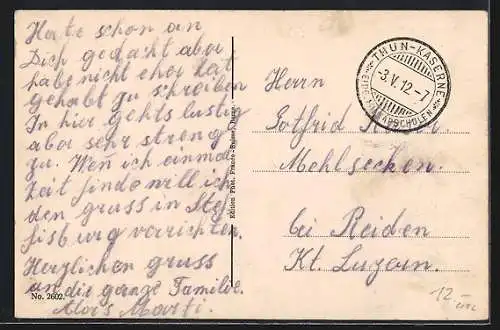 Hate schon an
Dich gedacht aber
habe nicht eher Zeit
gehabt zu schreiben
In hier gehts lustig
aber sehr streng
zu. Wen ich einmal
Zeit finde will ich
den gruss in Stef
fisburg verrichten.
Herzlichen gruss
an die ganze Familie.
Alois Marti.
No. 2602.
Edition Phot. Franco-Suisse, Berne.
THUN-KASERNE
-3.V.12-7
Herrn
Gotfrid
Mehlsecken.
bei Reiden
Kt. Luzern.
12